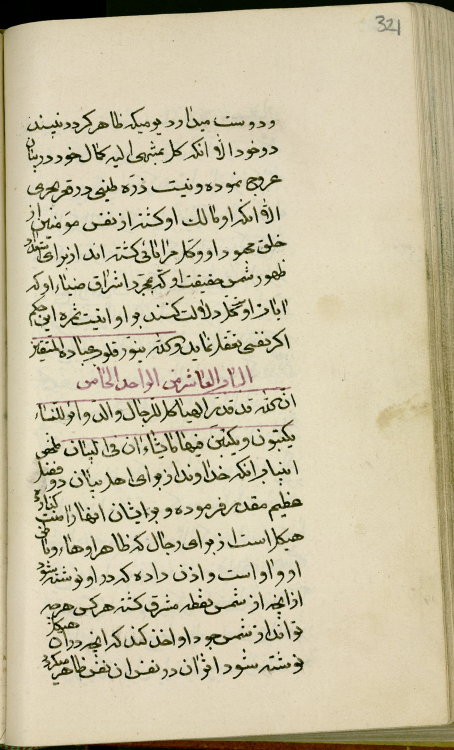 321
و دوست میدارد یومیکه ظاهر کردد نبیند
در خود الا انکه کل بمنتهی الیه کمال خود در بیان
عروج نموده و نیست ذره طینی در قعر بحری
الا انکه او مالک او کشته از نفس مؤمنین از
خلق محمود او و کل مرایائی کشته اند از برای استدلال
ظهور شمس حقیقت او که بمجرد اشراق ضیاء او کل
اکر نفسی
الباب العاشر من الواحد الخامس
ان الله قد قدر الهیاکل للرجال والدوائر للنساء
یکتبون و یکتبن فیها ما یشاءان فی البیان ملخص
این باب انکه خداوند از برای اهل بیان دو فضل
عظیم مقدر فرموده و بر ایشان انها را منت کذارده
هیکل است از برای رجال که ظاهر او هاء و باطن
او واو است و اذن داده که در او نوشته شود
انچه از شمس نقطه مشرق کشته هر کس هر چه
تواند از شمس جود او اخذ کند که انچه در ان هیکل
نوشته شود اثر ان در نفس ان نفس ظاهر میکردد